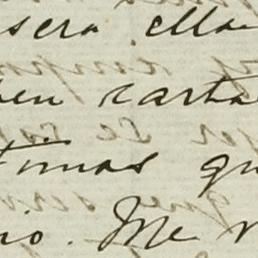 sera ella
en carta
timas qu
io. Me